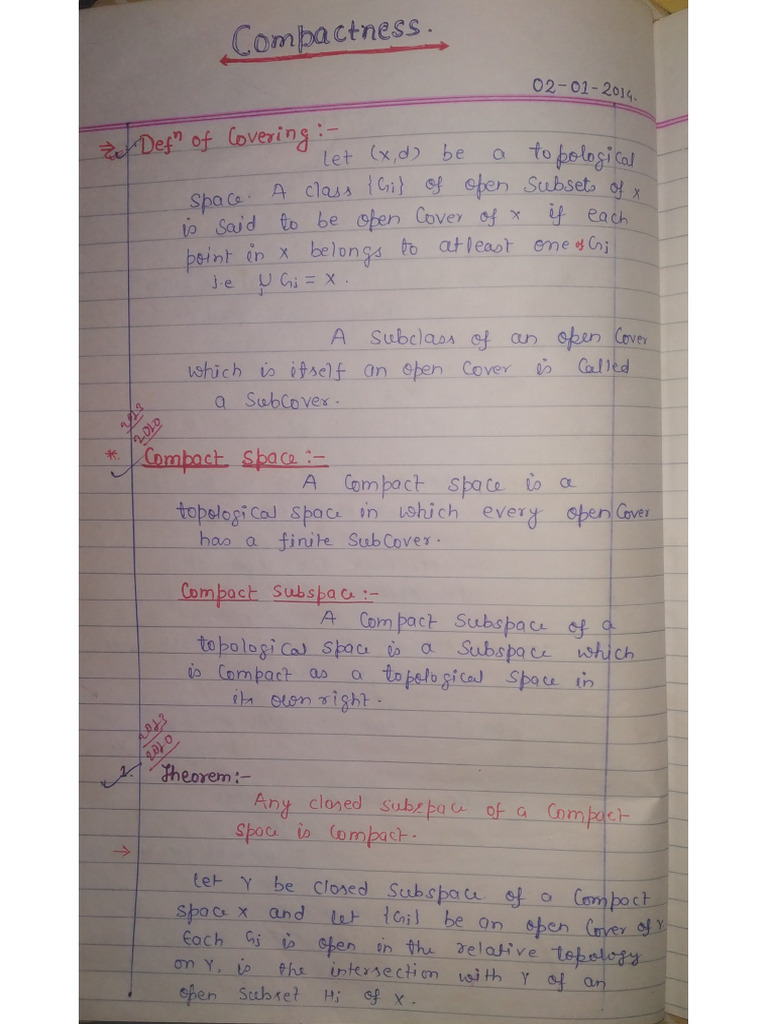 Compactness.
02-01-2014.
⇒ Defⁿ of Covering :-
Let (x,d) be a topological
space. A class {Gi} of open subsets of x
is said to be open Cover of x if each
point in x belongs to atleast one of Gi
i.e ∪ Gi = x.
i
A subclass of an open Cover
which is itself an open Cover is Called
a SubCover.
2013
2010
* Compact Space :-
A Compact space is a
topological space in which every open Cover
has a finite SubCover.
Compact Subspace :-
A Compact Subspace of a
topological space is a Subspace which
is Compact as a topological space in
its own right.
2013
2010
1. Theorem :-
Any closed subspace of a Compact
space is Compact.
→
Let Y be closed subspace of a Compact
space X and let {Gi} be an open Cover of Y.
Each Gi is open in the relative topology
on Y, is the intersection with Y of an
open subset Hi of X.